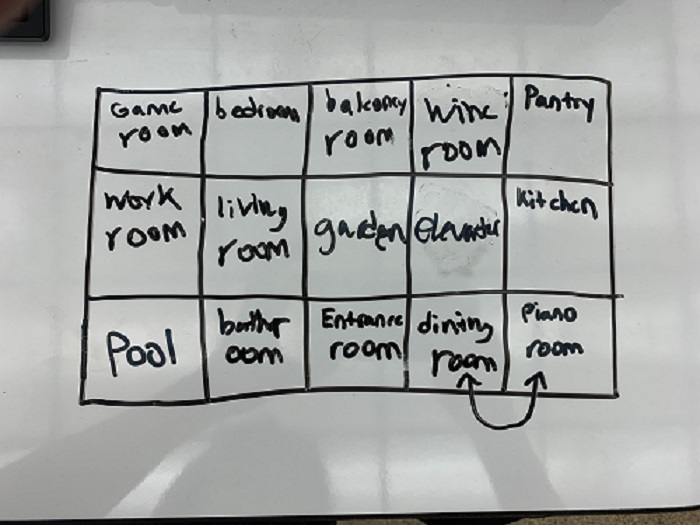 Game room
bedroom
balkoncy room
wine room
Pantry
work room
living room
garden
Elevator
kitchen
Pool
bathr oom
Entrance room
dining room
Piano room